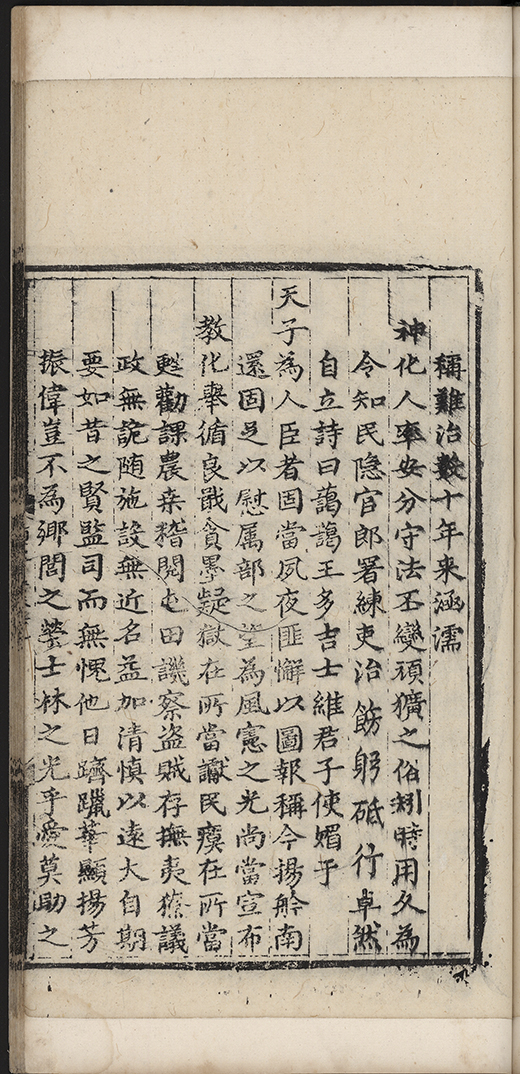 稱難治數十年来涵濡
神化人率安分守法丕變頑獷之俗矧時用久為
令知民隐官郎署練吏治飭躬砥行卓然
自立詩曰藹藹王多吉士維君子使媚于
天子為人臣者固當夙夜匪懈以圖報稱今揚舲南
還固足以慰属部之望為風憲之光尚當宣布
教化舉循良戢貪墨疑獄在所當讞民瘼在所當
甦勸課農桒稽閱屯田譏察盗賊存撫夷獠議
政無詭随施設無近名益加清慎以遠大自期
要如昔之賢監司而無愧他日躋躐華顯揚芳
振偉豈不為鄉閭之榮士林之光乎愛莫助之